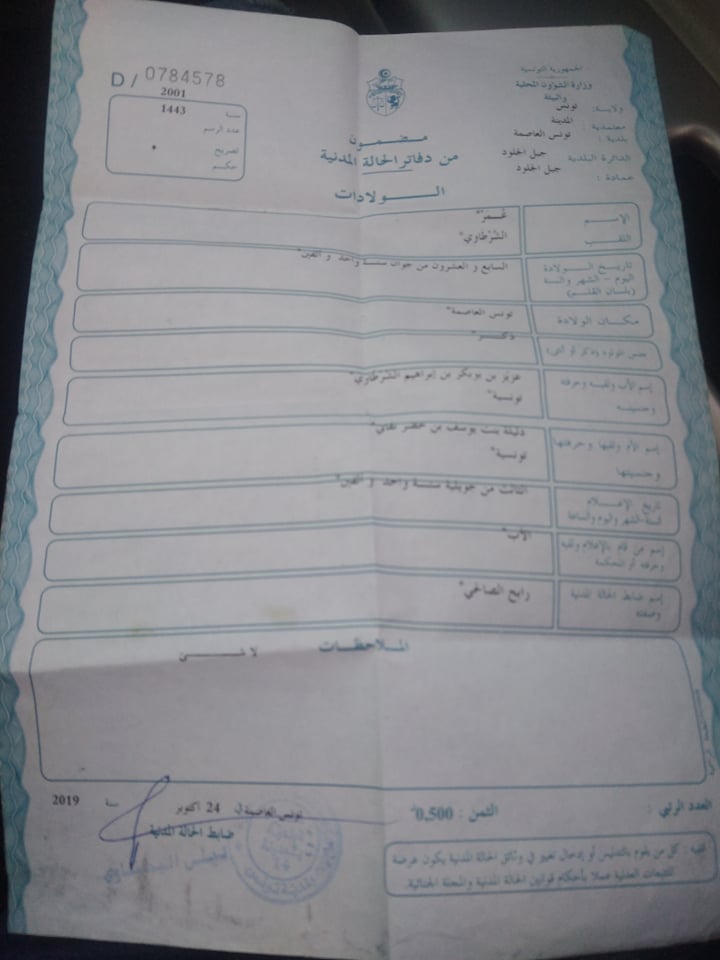 الجمهورية التونسية
وزارة الشؤون المحلية
والبيئة
ولاية : تونس
معتمدية : المدينة
بلدية : تونس العاصمة
الدائرة البلدية جبل الجلود
عمادة : جبل الجلود
D / 0784578
سنة 2001
عدد الرسم 1443
تصريح *
حكم
مضمون
من دفاتر الحالة المدنية
الولادات
الاسم عمر*
اللقب الشرطاوي*
تاريخ الولادة السابع و العشرون من جوان سنة واحد و ألفين*
اليوم - الشهر والسنة
(بلسان القلم)
مكان الولادة تونس العاصمة*
جنس المولود (ذكر أو أنثى) ذكر*
إسم الأب ولقبه وحرفته عزيز بن بوبكر بن إبراهيم الشرطاوي*
وجنسيته تونسية*
إسم الأم ولقبها وحرفتها دليلة بنت يوسف بن خضر
وجنسيتها تونسية*
تاريخ الإعلام الثالث من جويلية سنة واحد و ألفين*
السنة-الشهر واليوم والساعة
إسم من قام بالإعلام ولقبه الأب*
وحرفته أو المحكمة
إسم ضابط الحالة المدنية رابح الصالحي*
وصفته
الملاحظات
لا شئ
تونس العاصمة في 24 اكتوبر سنة 2019
ضابط الحالة المدنية
العدد الرتبي :
الثمن : 0,500
تنبيه : كل من يقوم بالتدليس أو إدخال تغيير في وثائق الحالة المدنية يكون عرضة
للتتبعات العدلية عملا بأحكام قوانين الحالة المدنية والمجلة الجنائية.